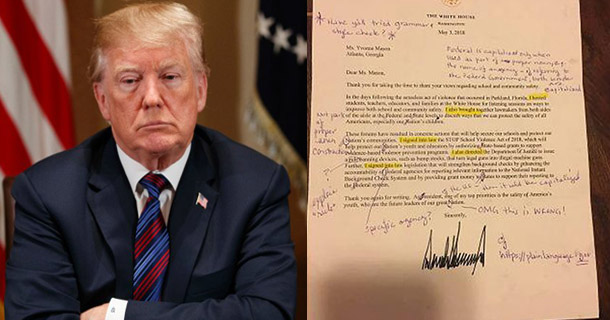 THE WHITE HOUSE
WASHINGTON
* Have y'all tried grammar &
style check?
May 3, 2018
Ms. Yvonne Mason
Atlanta, Georgia
Federal is capitalized only when
used as part of a proper noun
Dear Ms. Mason,
Thank you for taking the time to share your views regarding school and community safety.
In the days following the senseless act of violence that occurred in Parkland, Florida, I hosted
students, teachers, educators, and families at the White House for listening sessions on ways to
improve both school and community safety. I also brought together lawmakers from both sides
of the aisle at the Federal and State levels to discuss ways that we can protect the safety of all
Americans, especially our Nation's children.
These forums have resulted in concrete actions that will help secure our schools and protect our
Nation's communities. I signed into law the STOP School Violence Act of 2018, which will
help protect our Nation's youth and educators by authorizing State-based grants to support
evidence-based violence prevention programs. I also directed the Department of Justice to issue
a rule banning devices, such as bump stocks, that turn legal guns into illegal machine guns.
Further, I signed into law legislation that will strengthen background checks by enhancing the
accountability of Federal agencies for reporting relevant information to the National Instant
Background Check System and by providing grant money to States to support their reporting to
the Federal system.
Thank you again for writing. As President, one of my top priorities is the safety of America's
youth, who are the future leaders of our great Nation.
specific agency?
Sincerely,
OMG this is WRONG!
cf
https://plainlanguage.gov